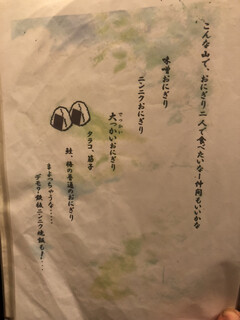 こんな山で、おにぎり二人で食べたいなー仲間もいいかな
味噌おにぎり
ニンニクおにぎり
でっかい
大っかいおにぎり
タラコ、筋子
鮭、梅の普通のおにぎり
まよっちゃうな・・・・
デモナ鉄板ニンニク焼飯も・・・